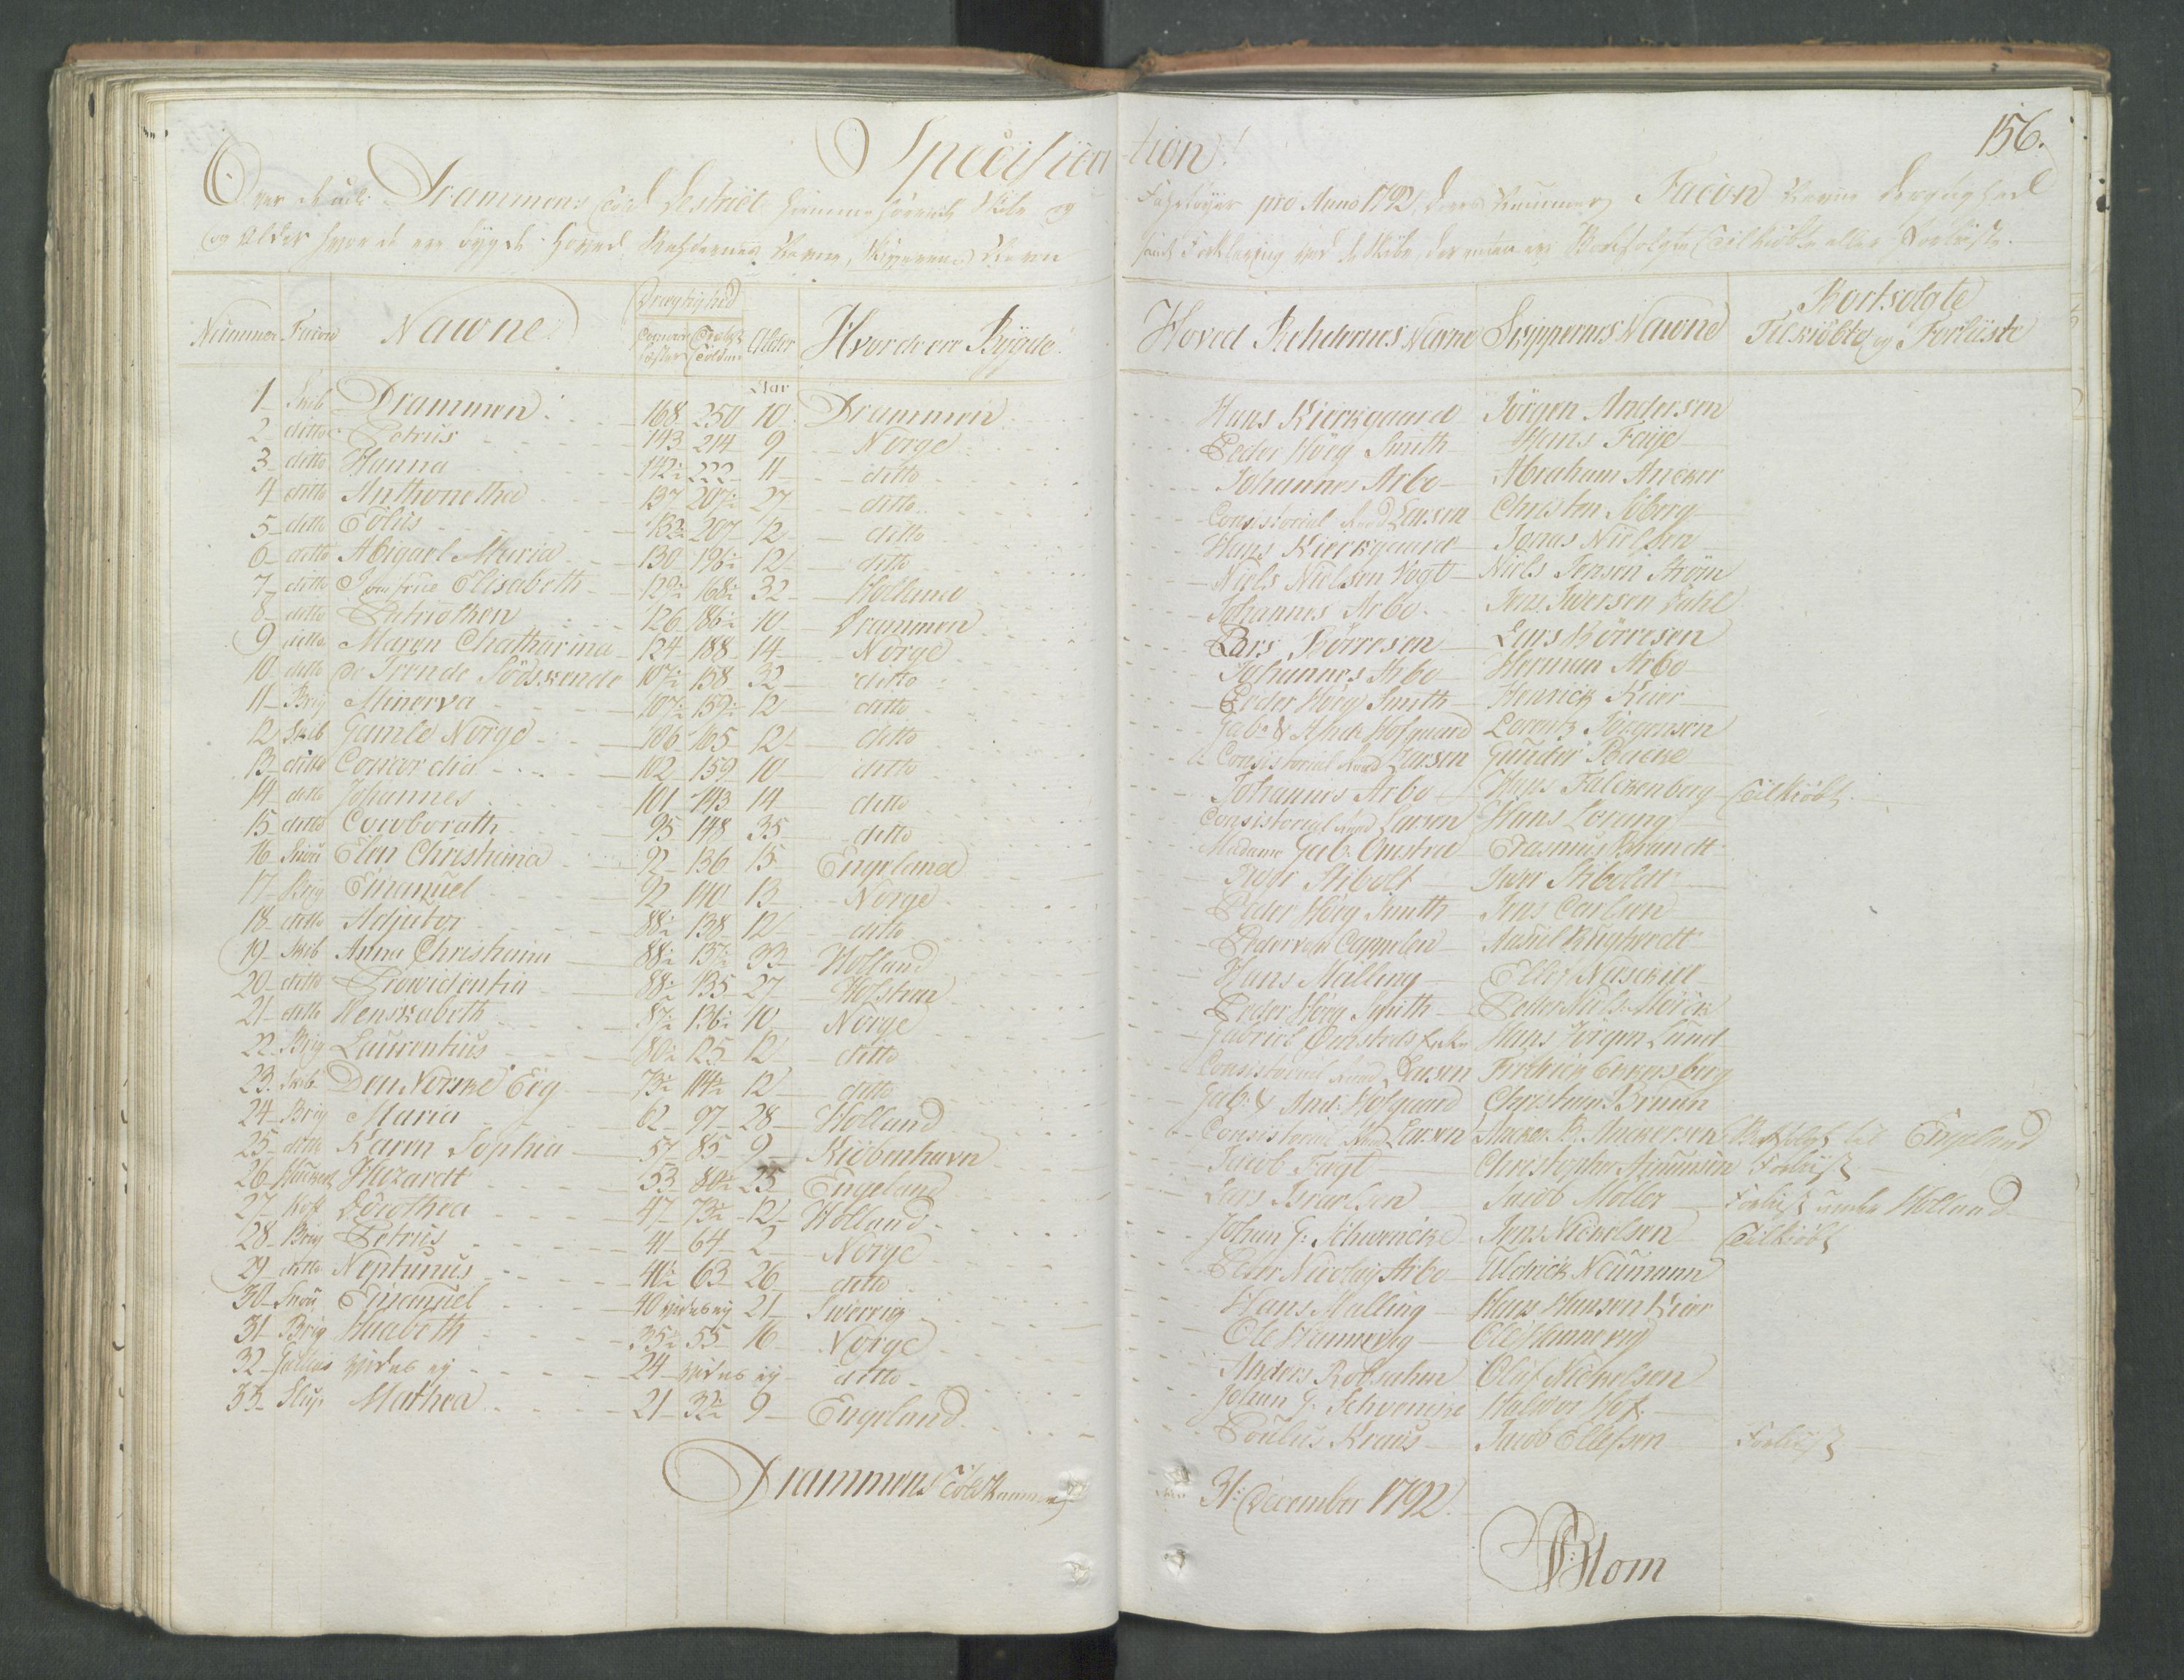 156.
Specification!
Over de udi Drammens Told Destrict hiemmehørende Skibe og Fahrtøyer pro Anno 1792, deres Nummer, Facion Navne Drægtighed
og Alder hvor de ere bÿgde Hoved Rehdernes Navne, Skippernes Navn samt Forklaring ved de Skibe, der ere Bortsolgte Tilkiøbte eller Forliiste.
Nummer Facion Nawne Drægtighed Alder Hvor de ere Bÿgde Hoved Rehdernes Nawne Skippernes Nawne Bortsolgte Tilkiøbte og Forliiste
Aar
1 Skib Drammen 168 250 10 Drammen Hans Kierkgaard Jörgen Andersen
2 ditto Petrus 143 214 9 Norge Peder Höeg Smith Hans Faÿe
3 ditto Hanna 142½ 222 11 ditto Johannes Arbo Abraham Ancker
4 ditto Anthonetha 137 207½ 27 ditto Consistorial Raad Larsen Christen Söberg
5 ditto Eölus 132½ 207 12 ditto Hans Kierkgaard Jonas Nielsen
6 ditto Abigael Maria 130 196½ 12 ditto Niels Nielsen Vogt Niels Jensen Ström
7 ditto Jomfrue Elisabeth 129½ 168½ 32 Holland Johannes Arbo Jens Iwersen Dahl
8 ditto Patriothen 126 186½ 10 Drammen Lars Börresen Lars Börresen
9 ditto Maren Chatharina 124 188 14 Norge Johannes Arbo Herman Arbo
10 ditto De Trende Södskende 107½ 158 32 ditto Peder Höeg Smith Henrick Kiær
11 Brig Minerva 107½ 159½ 12 ditto Gab: & Andr: Hofgaard Lorentz Jörgensen
12 Skib Gamle Norge 106 165 12 ditto Consistorial Raad Larsen Gunder Backe
13 ditto Concordia 102 159 10 ditto Johannes Arbo Hans Falckenberg Tilkiöbt
14 ditto Johannes 101 143 14 ditto Consistorial Raad Larsen Hans Lorung
15 ditto Cowborath 95 148 35 ditto Madame Gab: Omsted Erasmus Brandt
16 Snou Elen Christiana 92 136 15 Engeland Iwer Stibolt Iwer Stiboldt
17 Brig Emanuel 92 140 13 Norge Peder Höeg Smith Jens Carlsen
18 ditto Adjutor 88½ 138 12 ditto Peder von Cappelen
19 Skib Anna Christiana 88½ 137½ 33 Holland Hans Malling
20 ditto Prowidentia 88½ 135 27 Holsten Peder Höeg Smith Peder Niels: Mörck
21 ditto Wenskabeth 87½ 136½ 10 Norge Gabriel Omsteds Hans Jörgen Lund
22 Brig Laurentius 80½ 125 12 ditto Consistorial Raad Larsen Fridrich
23 Skib Den Norske Eeg 73½ 114½ 12 ditto Gab: & Andr: Hofgaard Christian Bruun
24 Brig Maria 62 97 28 Holland Consistorial Raad Larsen Ancker B. Anckersen Bortsolgt til Engeland
25 ditto Karen Sophia 57 85 9 Kiöbenhavn Jacob Fægt Christopher Amundsen Forliist
26 Huckert Hazardt 53 80½ 25 Engeland Lars Israelsen Jacob Möller Forliist under Holland
27 Koff Dorothea 47 73½ 12 Holland Johan G: Schwencke Jens Nichelsen Tilkiöbt
28 Brig Petrus 41 64 2 Norge Peter Nicolaÿ Arbo Uldrick Neumann
29 ditto Neptunus 40½ 63 26 ditto Hans Malling Hans Hansen Kiær
30 Snou Emanuel 40 vides eÿ 21 Swerrig Ole Hannevig Ole Hannevig
31 Brig Haabeth 35½ 55 16 Norge Anders Robsahm Oluf Nichelsen
32 Gallias vides eÿ 24 vides eÿ ditto Johan G. Schvencke Halvor
33 Slup Mathea 21 32½ 9 Engeland Poulus Kraus Jacob Ellefsen Forliist
Drammens Toldkammer 31: December 1792.
Blom